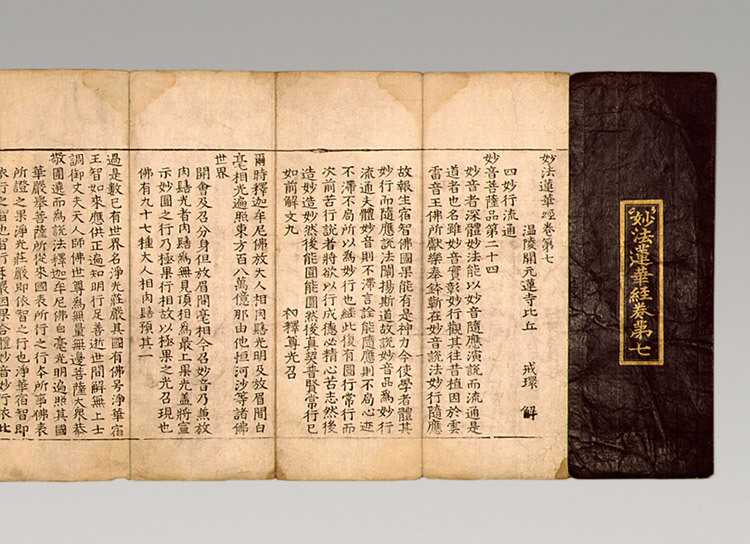 妙法蓮華經卷第七
妙法蓮華經卷第七
溫陵開元蓮寺比丘 戒環 解
四妙行流通
妙音菩薩品第二十四
妙音者深體妙法能以妙音隨應演說而流通是
道者也名雖妙音實彰妙行觀其往昔植因於雲
雷音王佛所獻樂奉鉢蘄在妙音說法妙行隨應
故報生宿智佛國果能有是神力令使學者體其
妙行而隨應說法闡揚斯道故說妙音品為妙行
流通夫體妙音則不滯言詮能隨應則不局心迹
不滯不局所以為妙行也經此復有圓行常行而
次前苦行說者將欲以行成德必精心苦志然後
造妙造妙然後能圓能圓然後真契普賢常行已
如前解文九 初釋尊光召
爾時釋迦牟尼佛放大人相肉髻光明及放眉間白
毫相光遍照東方百八萬億那由他恒河沙等諸佛
世界
開會及召分身但放眉間毫相今召妙音乃兼放
肉髻光者肉髻為無見頂相為最上果光蓋將宣
示妙圓之行乃極果行相故以極果之光召現也
佛有九十七種大人相肉髻預其一
過是數已有世界名淨光莊嚴其國有佛号淨華宿
王智如來應供正遍知明行足善逝世間解無上士
調御丈夫天人師佛世尊為無量無邊菩薩大衆恭
敬圍遶而為說法釋迦牟尼佛白毫光明遍照其國
華嚴舉菩薩所從來國表所行之行本所事佛表
所證之果淨光莊嚴即依智之行也淨華宿智即
依行之智也